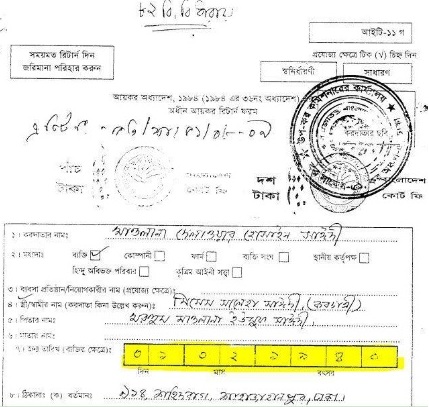 আইটি-১১ গ
সময়মত রিটার্ন দিন
জরিমানা পরিহার করুন
প্রযোজ্য ক্ষেত্রে টিক (√) চিহ্ন দিন
স্বনির্ধারণী
সাধারণ
আয়কর অধ্যাদেশ, ১৯৮৪ (১৯৮৪ এর ৩৬নং অধ্যাদেশ)
অধীন আয়কর রিটার্ন ফরম
পাঁচ
টাকা
দশ
টাকা
কোর্ট ফি
১। করদাতার নাম: মাওলানা দেলাওয়ার হোসাইন সাঈদী
২। মর্যাদা: ব্যক্তি কোম্পানী ফার্ম ব্যক্তি সংঘ স্থানীয় কর্তৃপক্ষ
হিন্দু অবিভক্ত পরিবার কৃত্রিম আইনী সত্ত্বা
৩। ব্যবসা প্রতিষ্ঠান/নিয়োগকারীর নাম (প্রযোজ্য ক্ষেত্রে):
৪। স্ত্রী/স্বামীর নাম (করদাতা কিনা উল্লেখ করুন): মিসেস সালেহা সাঈদী, (করদাতা)
৫। পিতার নাম: মরহুম মাওলানা ইউসুফ সাঈদী,
৬। মাতার নাম:
৭। জন্ম তারিখ (ব্যক্তির ক্ষেত্রে): ০ ১ ০ ২ ১ ৯ ৪ ০
দিন মাস বৎসর
৮। ঠিকানা: (ক) বর্তমান: ৯১৪ শাহিদবাগ, ঢাকা।